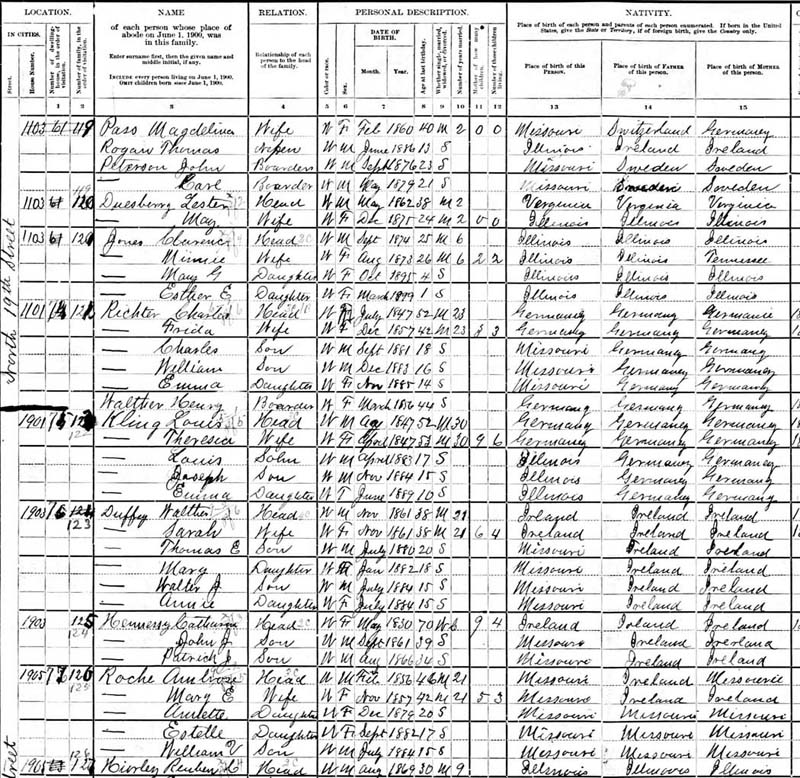 LOCATION. NAME RELATION. PERSONAL DESCRIPTION. NATIVITY.
IN CITIES. of each person whose place of abode on June 1, 1900, was in this family. Relationship of each person to the head of the family. DATE OF BIRTH. Place of birth of each person and parents of each person enumerated. If born in the United States, give the State or Territory; if of foreign birth, give the Country only.
Enter surname first, then the given name and middle initial, if any.
INCLUDE every person living on June 1, 1900. OMIT children born since June 1, 1900.
Street. House Number. Number of dwelling-house, in the order of visitation. Number of family, in the order of visitation. Color or race. Sex. Month. Year. Age at last birthday. Whether single, married, widowed, or divorced. Number of years married. Mother of how many children. Number of these children living. Place of birth of this PERSON. Place of birth of FATHER of this person. Place of birth of MOTHER of this person.
1 2 3 4 5 6 7 8 9 10 11 12 13 14 15
North 19th Street
1103 61 119 Paso Magdelina Wife W F Feb 1860 40 M 2 0 0 Missouri Switzerland Germany
Rogan Thomas W M June 1886 13 S Illinois Ireland Ireland
Peterson John Boarder W M Sept 1876 23 S Missouri Sweden Sweden
— Carl Boarder W M May 1879 21 S Missouri Sweden Sweden
1103 61 120 Duesberry Lester Head W M May 1862 38 M 2 Verginia Virginia Verginia
— May Wife W F Dec 1875 24 M 2 0 0 Illinois Illinois Illinois
1103 61 Jones Clarence Head W M Sept 1874 25 M 6 Illinois Illinois Illinois
— Minnie Wife W F Aug 1873 26 M 6 2 2 Illinois Illinois Tennessee
— Mary G Daughter W F Oct 1895 4 S Illinois Illinois Illinois
— Esther E Daughter W F March 1899 1 S Illinois Illinois Illinois
1101 Richter Charles Head W M July 1847 52 M 23 Germany Germany Germanie
— Frida Wife W F Dec 1857 42 M 23 3 Germany Germany Germany
— Charles Son W M Sept 1881 18 S Missouri Germany Germany
— William Son W M Dec 1883 16 S Missouri Germany Germany
— Emma Daughter W F Nov 1885 14 S Missouri Germany Germany
Walther Henry Boarder W F March 1856 44 S Germany Germany Germany
1901 Kling Louis Head W M Aug 1847 52 M 30 Germany Germany Germany
— Theresia Wife W F April 1847 53 M 30 9 6 Germany Germany Germany
— Louis Sohn W M April 1883 17 S Illinois Germany Germany
— Joseph Son W M Nov 1884 15 S Illinois Germany Germany
— Emma Daughter W June 1889 10 S Illinois Germany Germany
1903 123 Duffey Walther Head W M Nov 1861 38 M 21 Ireland Ireland Ireland
— Sarah Wife W F Nov 1861 38 M 21 6 4 Ireland Ireland Ireland
— Thomas E Son W M July 1880 20 S Missouri Ireland Ireland
— Mary Daughter W F Jan 1882 18 S Missouri Ireland Ireland
— Walter J Son W M July 1884 15 S Missouri Ireland Ireland
— Annie Daughter W F July 1884 15 S Missouri Ireland Ireland
1903 125 124 Hennessy Catharine Head W F May 1830 70 Wd 9 4 Ireland Ireland Ireland
— John J Son W M Sept 1861 39 S Missouri Ireland Ireland
— Patrick J Son W M Aug 1866 34 S Missouri Ireland Ireland
1905 126 125 Roche Ambrose Head W M Feb 1856 46 M 21 Missouri Ireland Missourie
— Mary E Wife W F Nov 1857 42 M 21 5 3 Missouri Ireland Ireland
— Annette Daughter W F Dec 1879 20 S Missouri Missouri Missouri
— Estelle Daughter W F Sept 1882 17 S Missouri Missouri Missouri
— William V Son W M July 1884 15 S Missouri Missouri Missouri
1905 Reuben H Head W M Aug 1869 30 M 9 Illinois Illinois Illinois